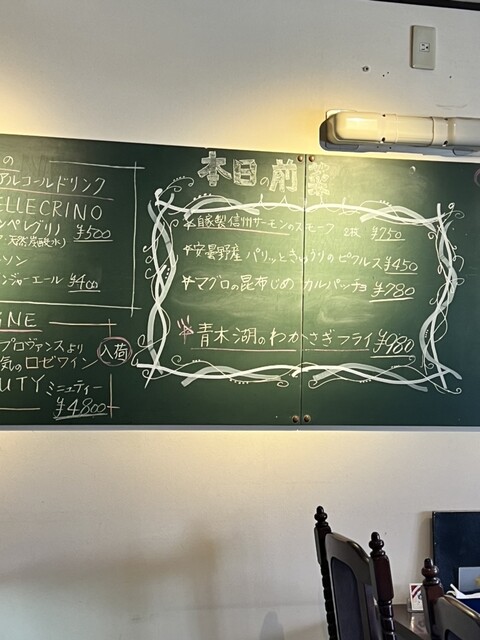 の
アルコールドリンク
ELLEGRINO
ンペレグリノ
・天然炭酸水)
¥500
ンソン
ンジャーエール ¥400
GNE
プロヴァンスより
気のロゼワイン
入荷
UTY ミニュティー
¥4800
本日の前菜
自家製信州サーモンのスモーク 2枚 ¥750
安曇野産 パリッときゅうりのピクルス ¥450
マグロの昆布じめ カルパッチョ ¥780
青木湖のわかさぎフライ ¥980